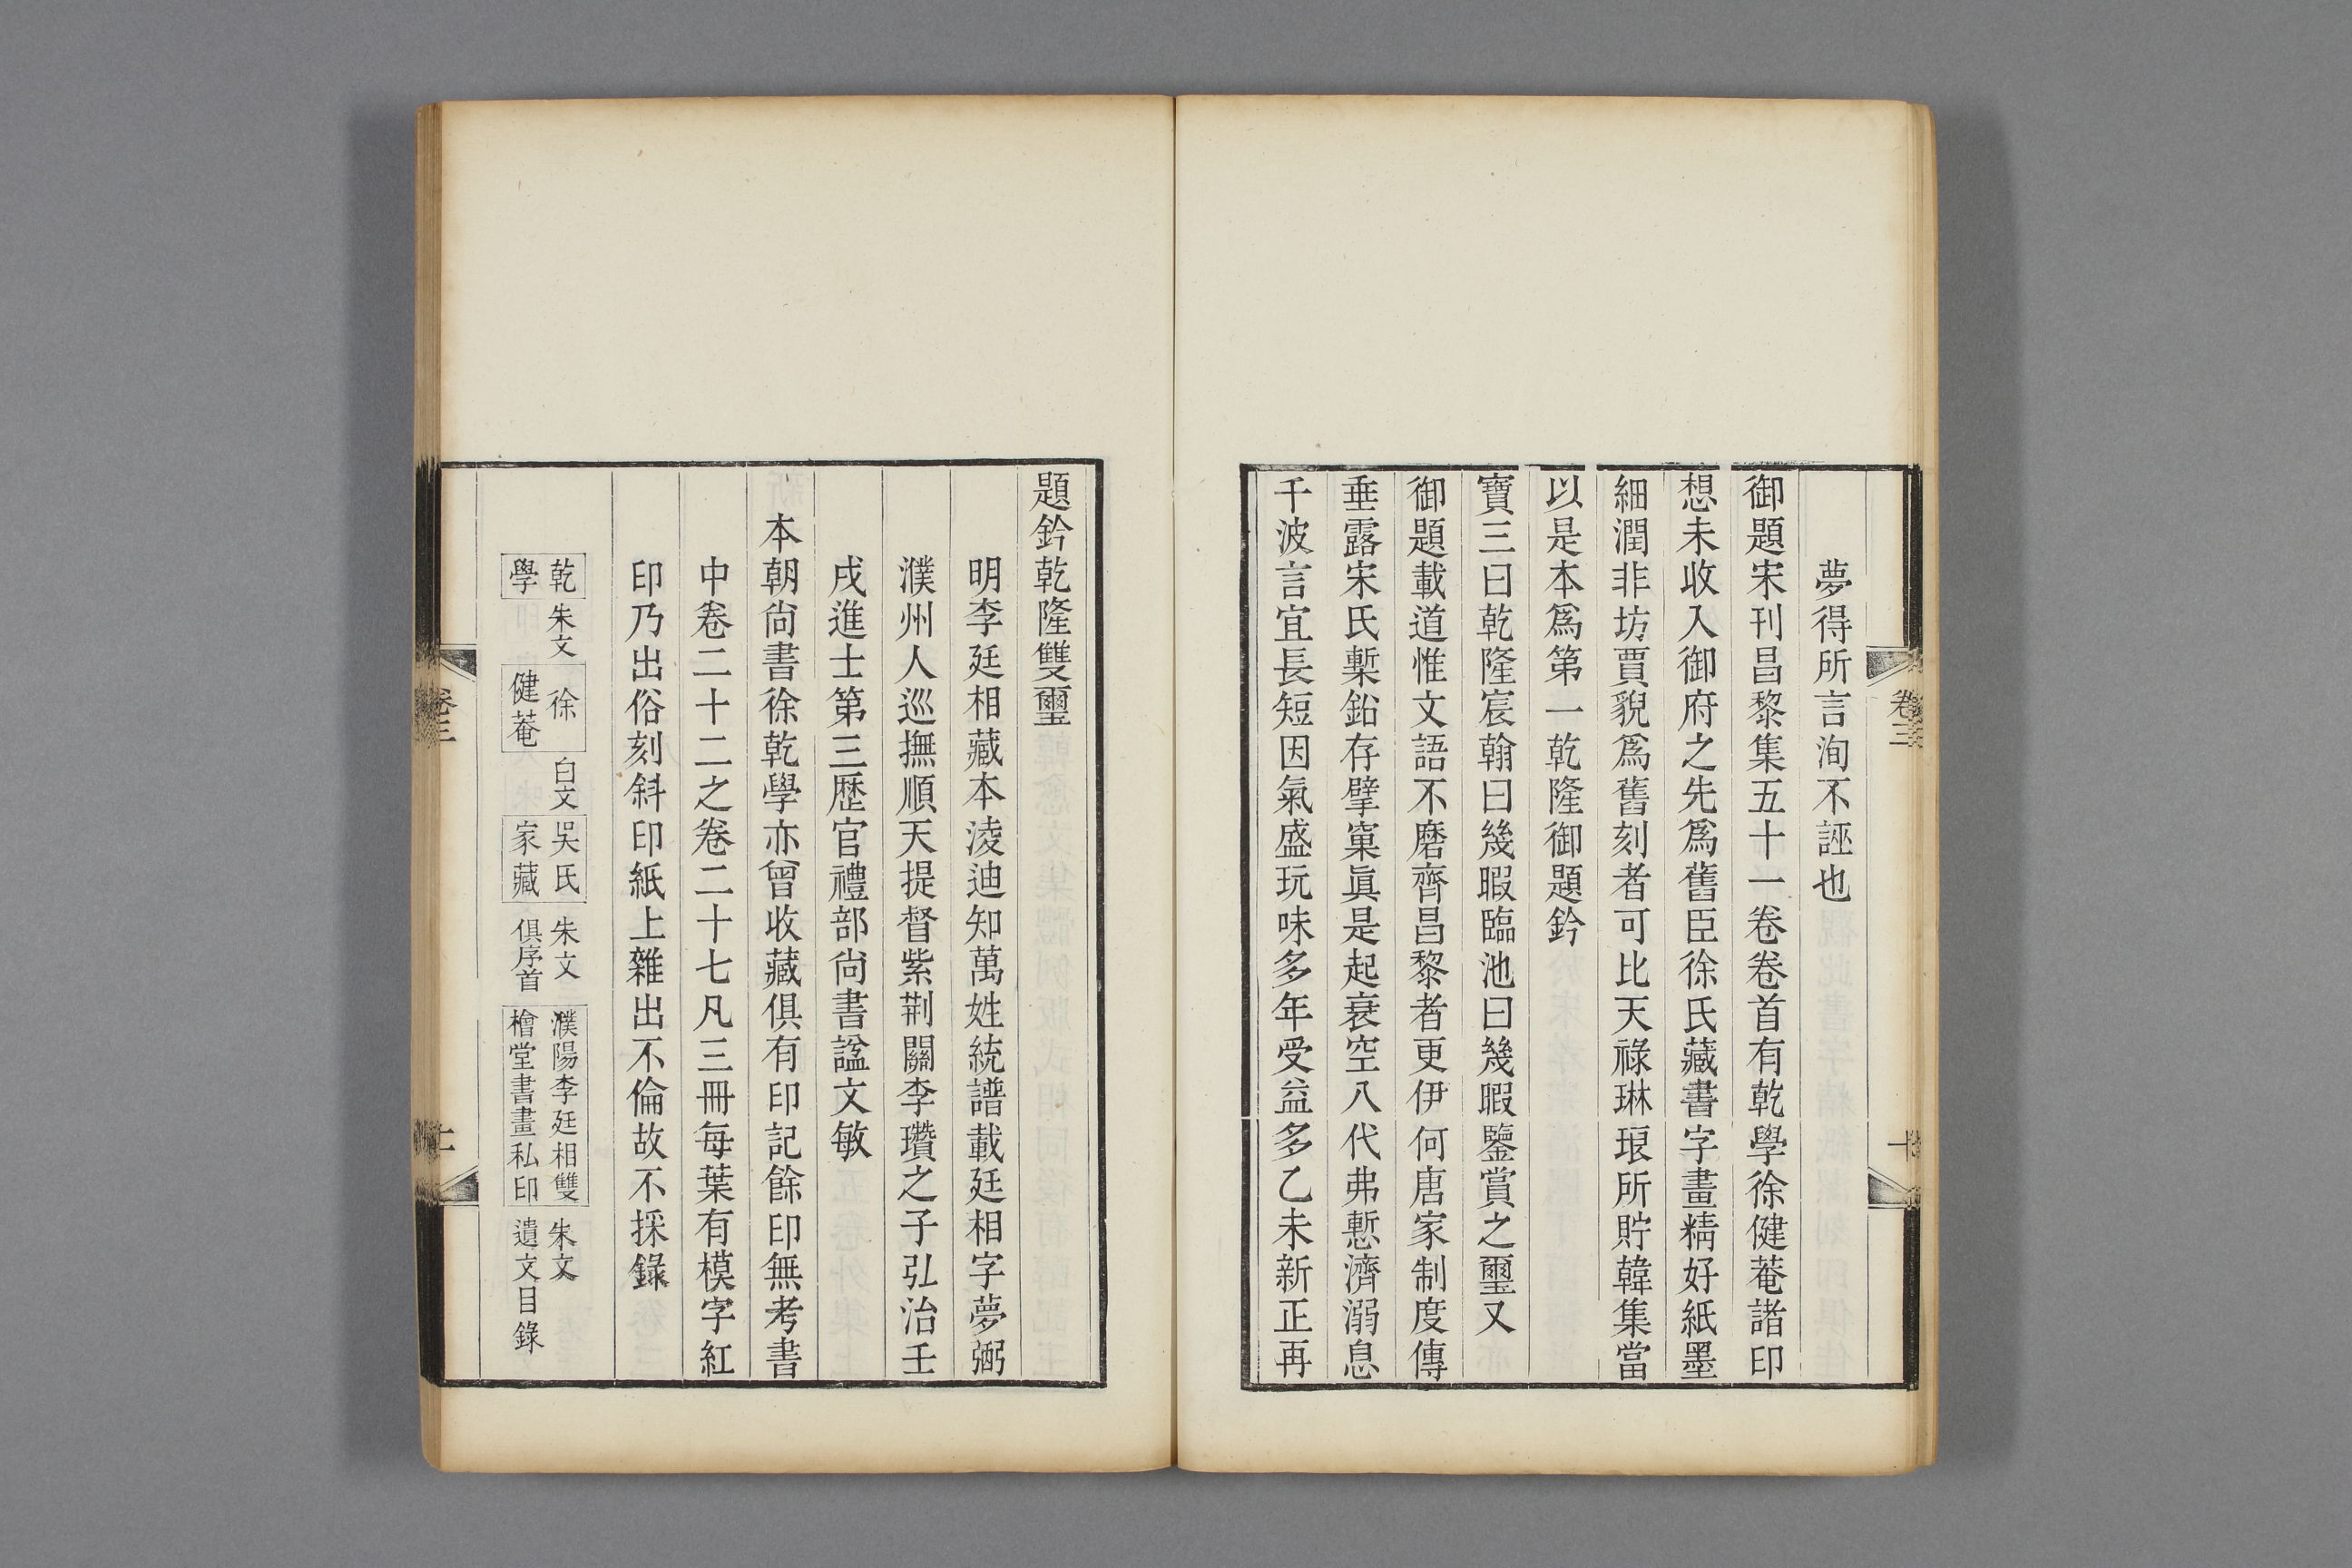 夢得所言洵不誣也
御題宋刊昌黎集五十一卷卷首有乾學徐健菴諸印
想未收入御府之先爲舊臣徐氏藏書字畫精好紙墨
細潤非坊賈貌爲舊刻者可比天祿琳琅所貯韓集當
以是本爲第一乾隆御題鈐
寶三曰乾隆宸翰曰幾暇臨池曰幾暇鑒賞之璽又
御題載道惟文語不磨齊昌黎者更伊何唐家制度傳
垂露宋氏槧鉛存擘窠眞是起衰空八代弗慙濟溺息
千波言宜長短因氣盛玩味多年受益多乙未新正再
卷三
十
題鈐乾隆雙璽
明李廷相藏本淩迪知萬姓統譜載廷相字夢弼
濮州人巡撫順天提督紫荆關李瓚之子弘治壬
戌進士第三歷官禮部尙書諡文敏
本朝尙書徐乾學亦曾收藏俱有印記餘印無考書
中卷二十二之卷二十七凡三冊每葉有模字紅
印乃出俗刻斜印紙上雜出不倫故不採錄
乾學 朱文 徐健菴 白文 吳氏家藏 朱文 俱序首 濮陽李廷相雙檜堂書畫私印 朱文 遺文目錄
卷三